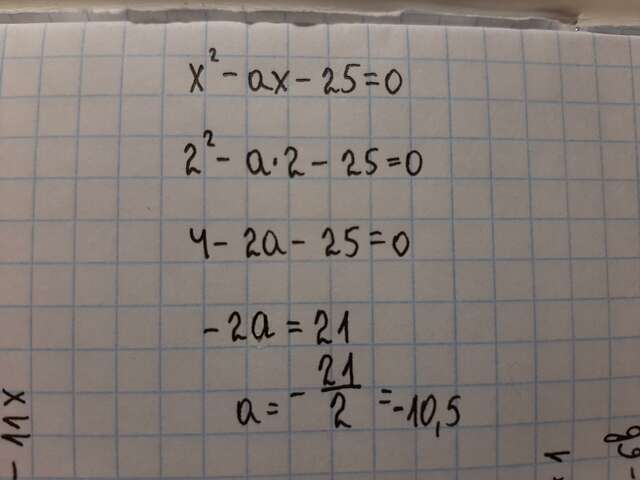 x² - ax - 25 = 0
2² - a · 2 - 25 = 0
4 - 2a - 25 = 0
-2a = 21
a = - 21/2 = -10,5
- 11x